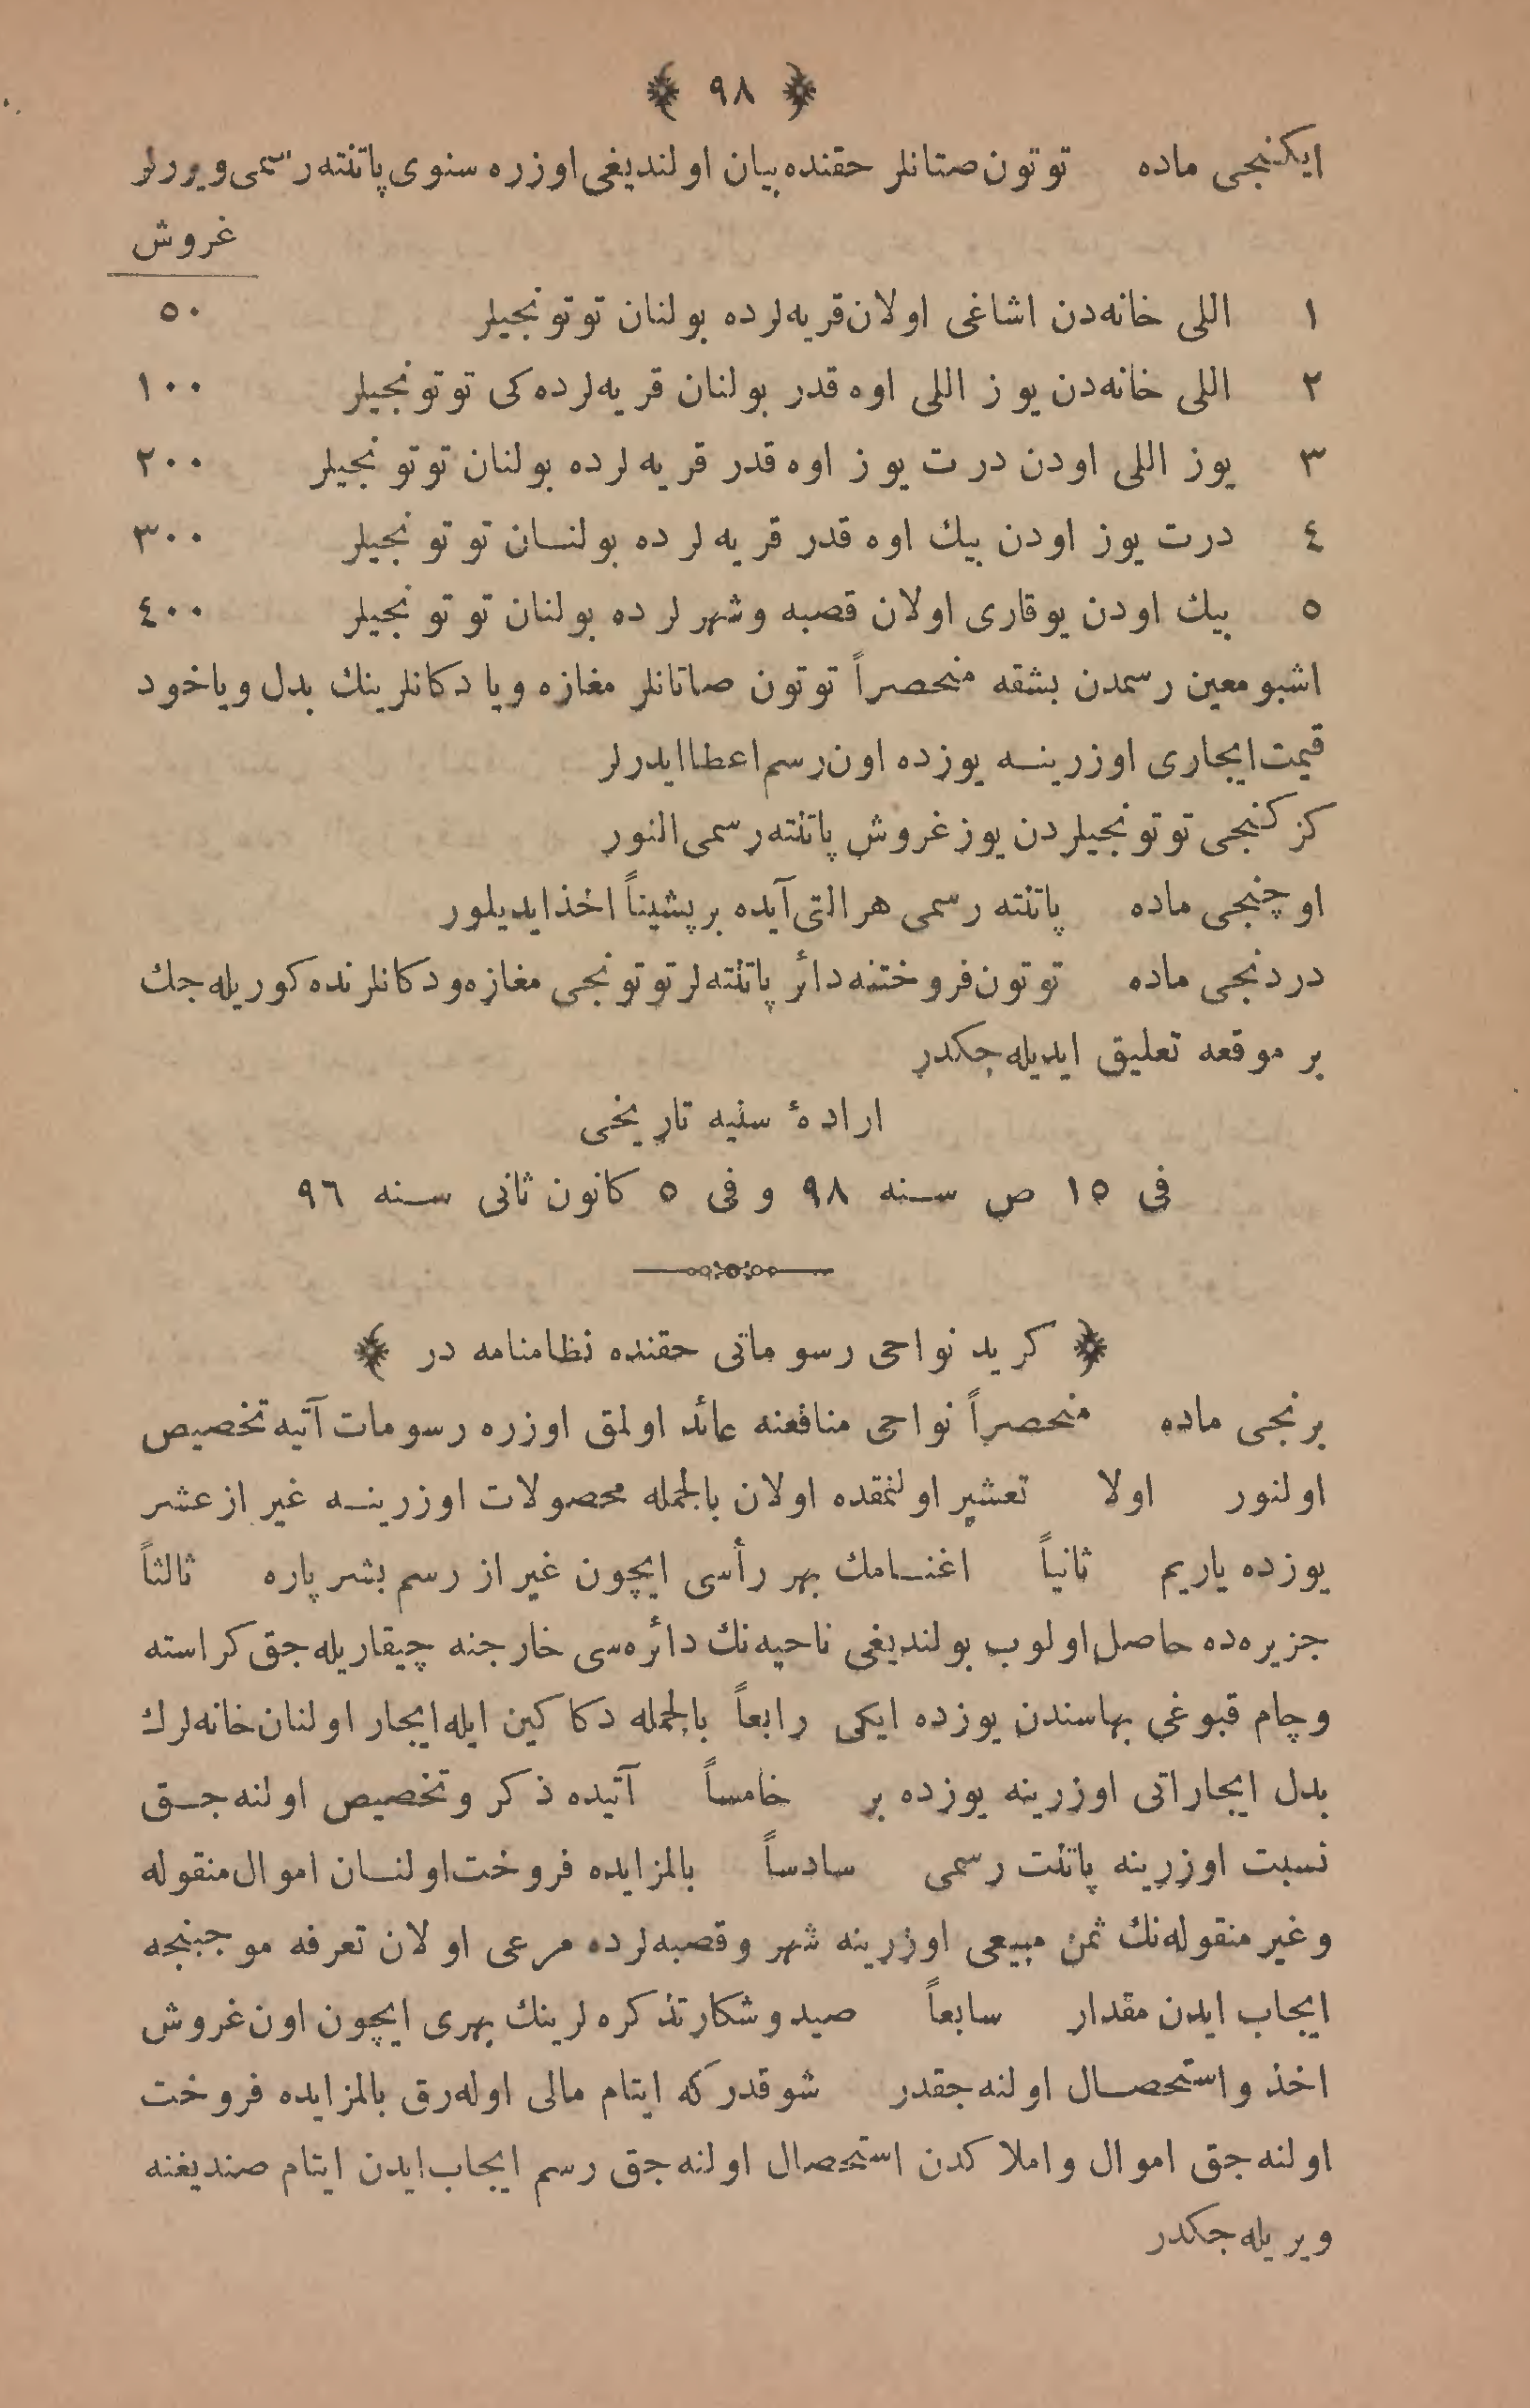 ﴿ ٩٨ ﴾
ایکنجی ماده توتون صتانلر حقنده بیان اولندیغی اوزره سنوی پاتنته رسمی ویررلر
غروش
١ اللی خانه‌دن اشاغی اولان قریه‌لرده بولنان توتونجیلر ٥٠
٢ اللی خانه‌دن یوز اللی اوه قدر بولنان قریه‌لرده‌کی توتونجیلر ١٠٠
٣ یوز اللی اودن درت یوز اوه قدر قریه‌لرده بولنان توتونجیلر ٢٠٠
٤ درت یوز اودن بیك اوه قدر قریه‌لرده بولنان توتونجیلر ٣٠٠
٥ بیك اودن یوقاری اولان قصبه وشهرلرده بولنان توتونجیلر ٤٠٠
اشبو معین رسمدن بشقه منحصراً توتون صاتانلر مغازه ویا دکانلرینك بدل ویاخود
قیمت ایجاری اوزرینه یوزده اون رسم اعطا ایدرلر
کزکنجی توتونجیلردن یوز غروش پاتنته رسمی النور
اوچنجی ماده پاتنته رسمی هر التی آیده بر پشیناً اخذ ایدیلور
دردنجی ماده توتون فروختنه دائر پاتنته‌لر توتونجی مغازه ودکانلرنده کوریله‌جك
بر موقعه تعلیق ایدیله‌جکدر
ارادۀ سنیه تاریخی
فی ١٥ ص سنه ٩٨ و فی ٥ کانون ثانی سنه ٩٦
﴿ کرید نواحی رسوماتی حقنده نظامنامه در ﴾
برنجی ماده منحصراً نواحی منافعنه عائد اولمق اوزره رسومات آتیه تخصیص
اولنور اولا تعشیر اولنمقده اولان بالجمله محصولات اوزرینه غیر از عشر
یوزده یاریم ثانیاً اغنامك بهر رأسی ایچون غیر از رسم بشر پاره ثالثاً
جزیره‌ده حاصل اولوب بولندیغی ناحیه‌نك دائره‌سی خارجنه چیقاریله‌جق کراسته
وچام قبوغی بهاسندن یوزده ایکی رابعاً بالجمله دکاکین ایله ایجار اولنان خانه‌لرك
بدل ایجاراتی اوزرینه یوزده بر خامساً آتیده ذکر وتخصیص اولنه‌جق
نسبت اوزرینه پاتنت رسمی سادساً بالمزایده فروخت اولنان اموال منقوله
وغیر منقوله‌نك ثمن مبیعی اوزرینه شهر وقصبه‌لرده مرعی اولان تعرفه موجبنجه
ایجاب ایدن مقدار سابعاً صید وشکار تذکره‌لرینك بهری ایچون اون غروش
اخذ واستحصال اولنه‌جقدر شو قدر که ایتام مالی اوله‌رق بالمزایده فروخت
اولنه‌جق اموال واملاکدن استحصال اولنه‌جق رسم ایجاب ایدن ایتام صندیغنه
ویریله‌جکدر